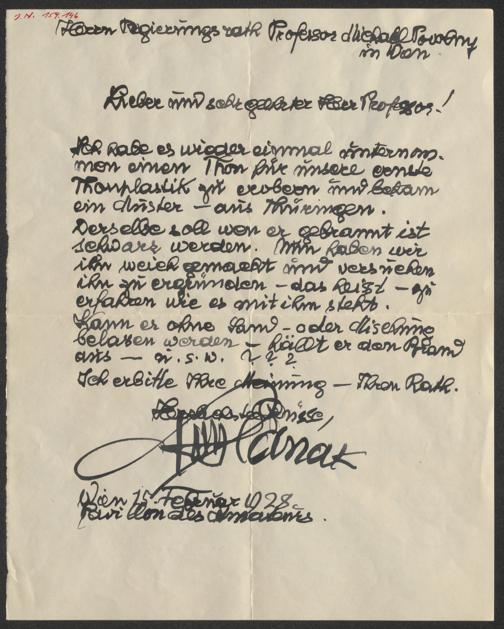 J.N. 159.146
Herrn Regierungsrath Professor Michael Powolny
in Wien.
Lieber und sehr geehrter Herr Professor!
Ich habe es wieder einmal unternom-
men einen Thon für unsere ernste
Thonplastik zu erobern und bekam
ein Muster – aus Thüringen.
Derselbe soll wen er gebrannt ist
schwarz werden. Nun haben wir
ihn weich gemacht und versuchen
ihn zu ergründen – das heist – zu
erfahren wie es mit ihm steht.
Kann er ohne Sand – oder Mischung
belassen werden – hällt er den Brand
aus — u.s.w. ? ? ?
Ich erbitte Ihre Meinung – Ihren Rath.
Herzlichste Grüsse,
Hanak
Wien 15 Februar 1928.
Pavillon des Amateurs.